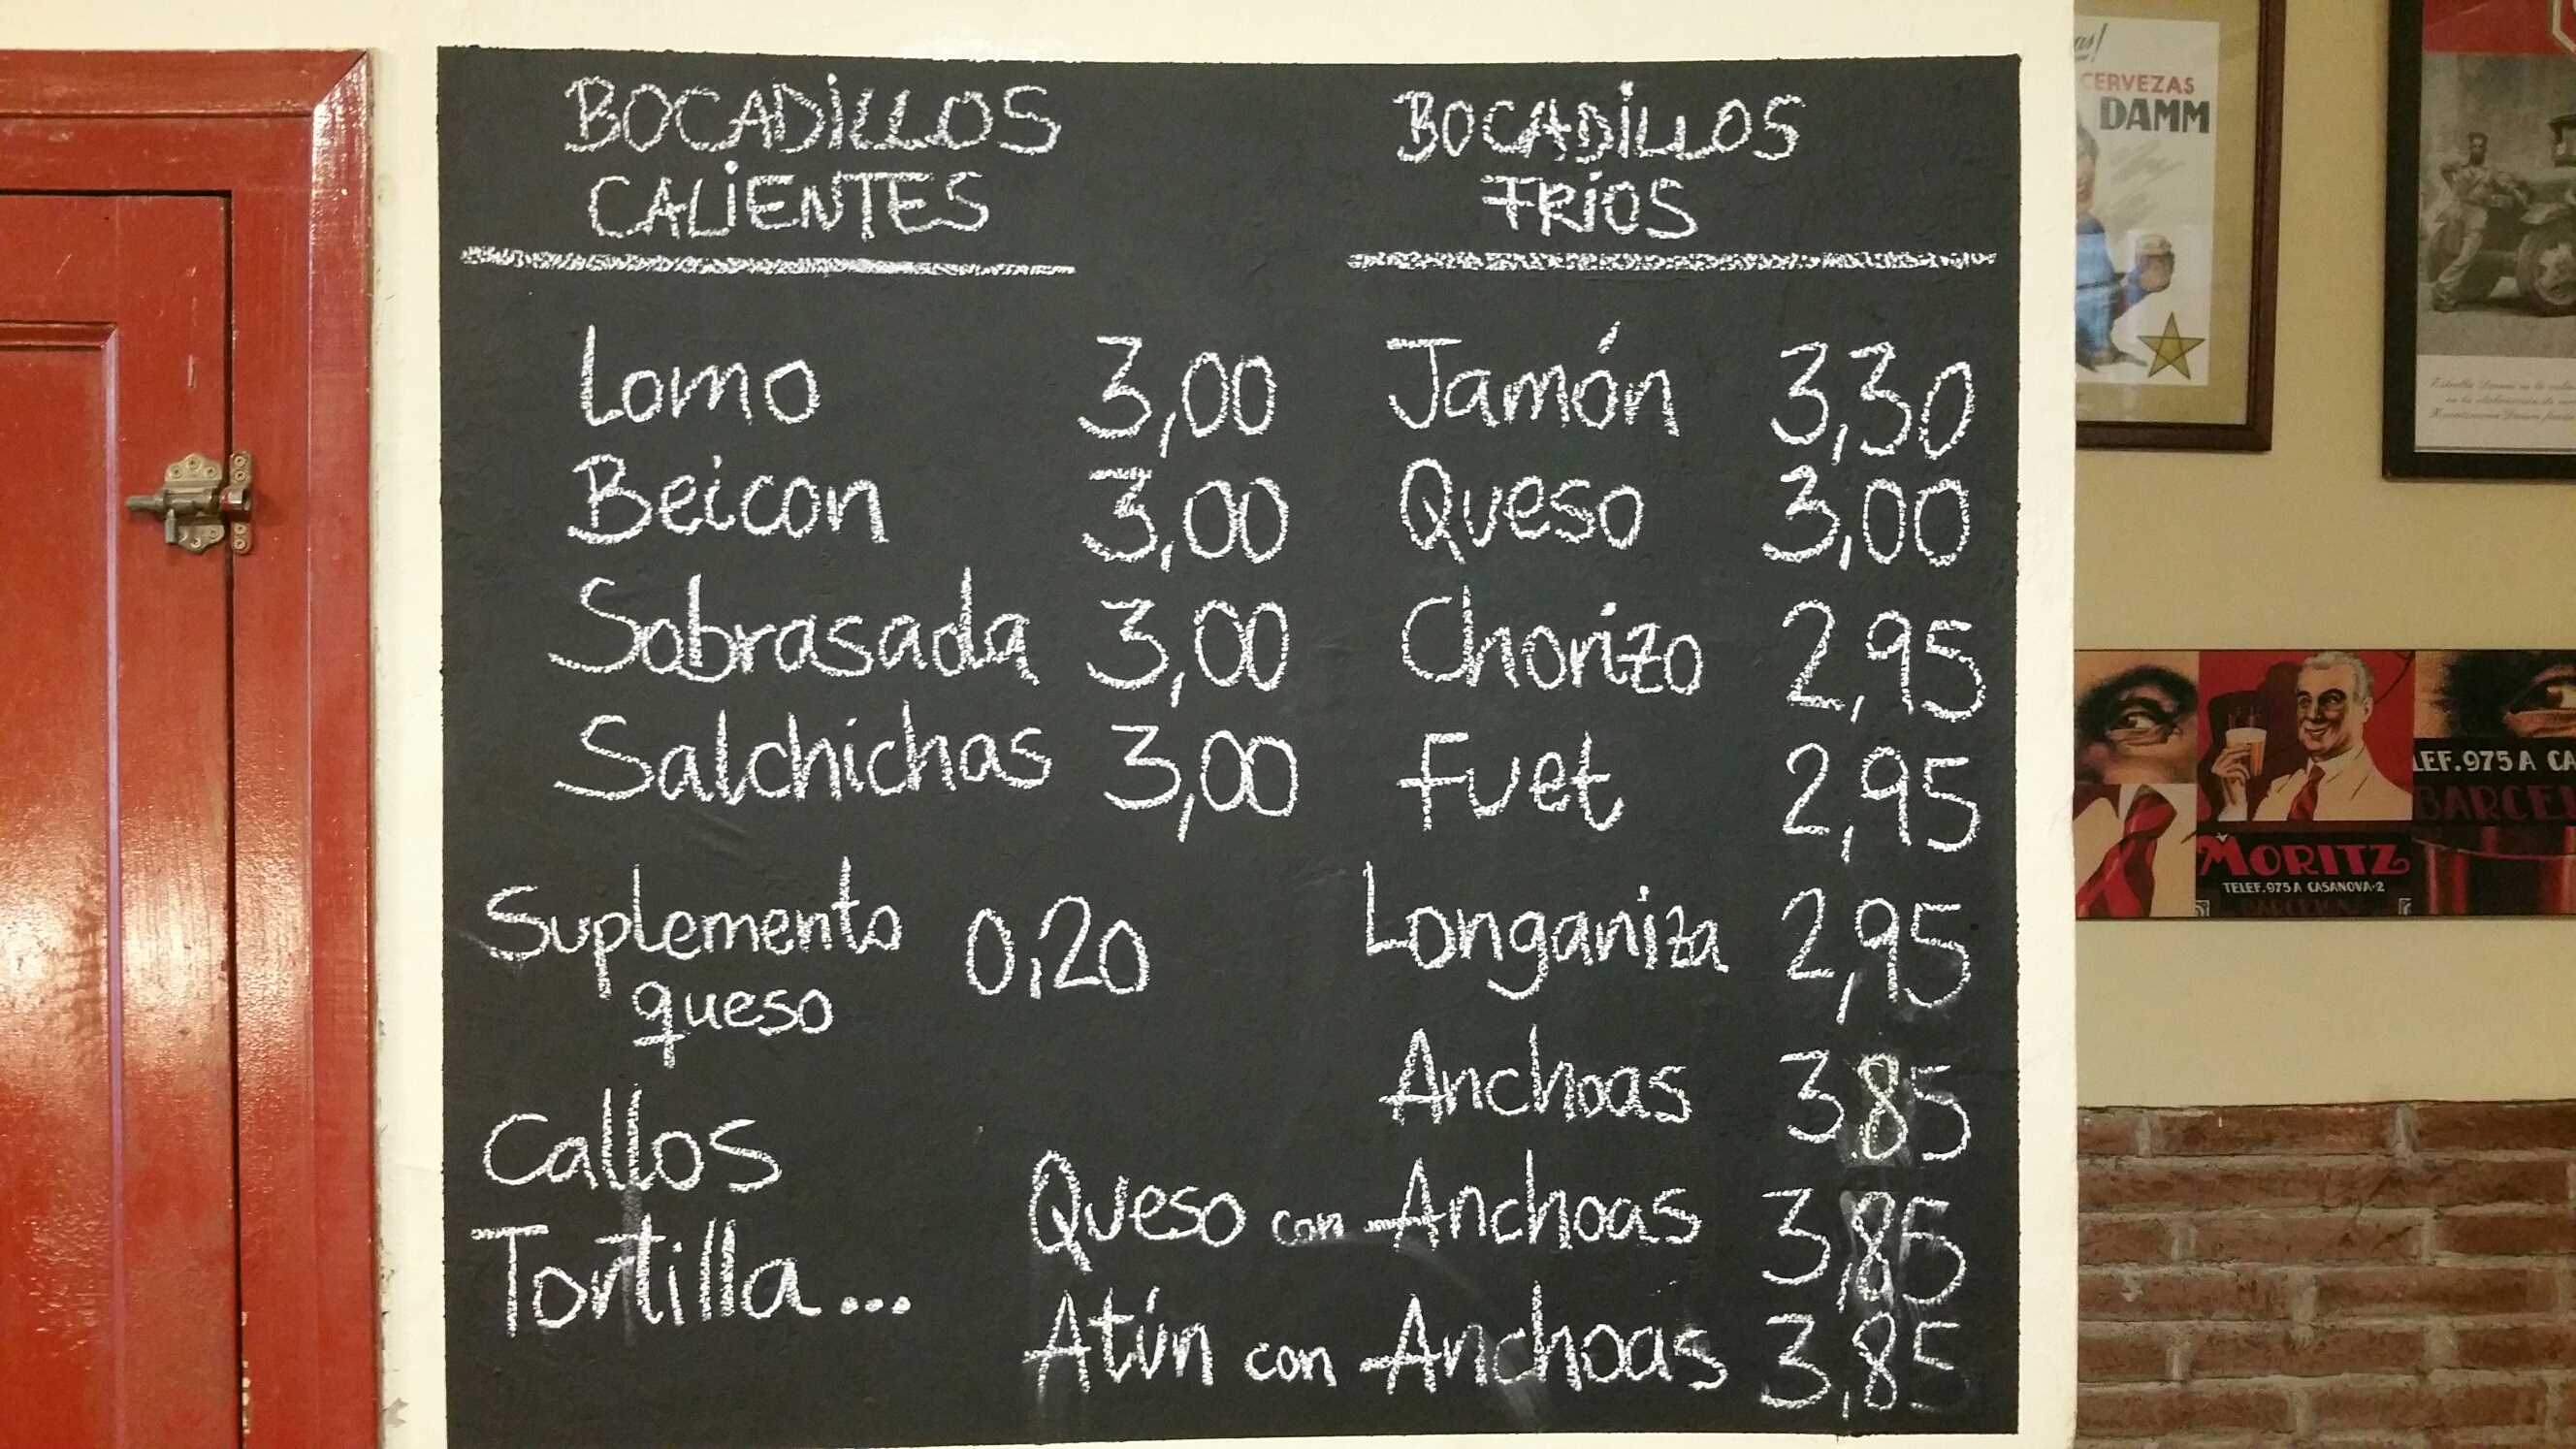 BOCADILLOS
CALIENTES
Lomo 3,00
Beicon 3,00
Sobrasada 3,00
Salchichas 3,00
Suplemento 0,20
queso
Callos
Tortilla...
BOCADILLOS
FRÍOS
Jamón 3,30
Queso 3,00
Chorizo 2,95
Fuet 2,95
Longaniza 2,95
Anchoas 3,85
Queso con Anchoas 3,85
Atún con Anchoas 3,85
CERVEZAS
DAMM
LEF.975 A CA
BARCEL
MORITZ
TELEF.975 A CASANOVA-2
BARCELONA